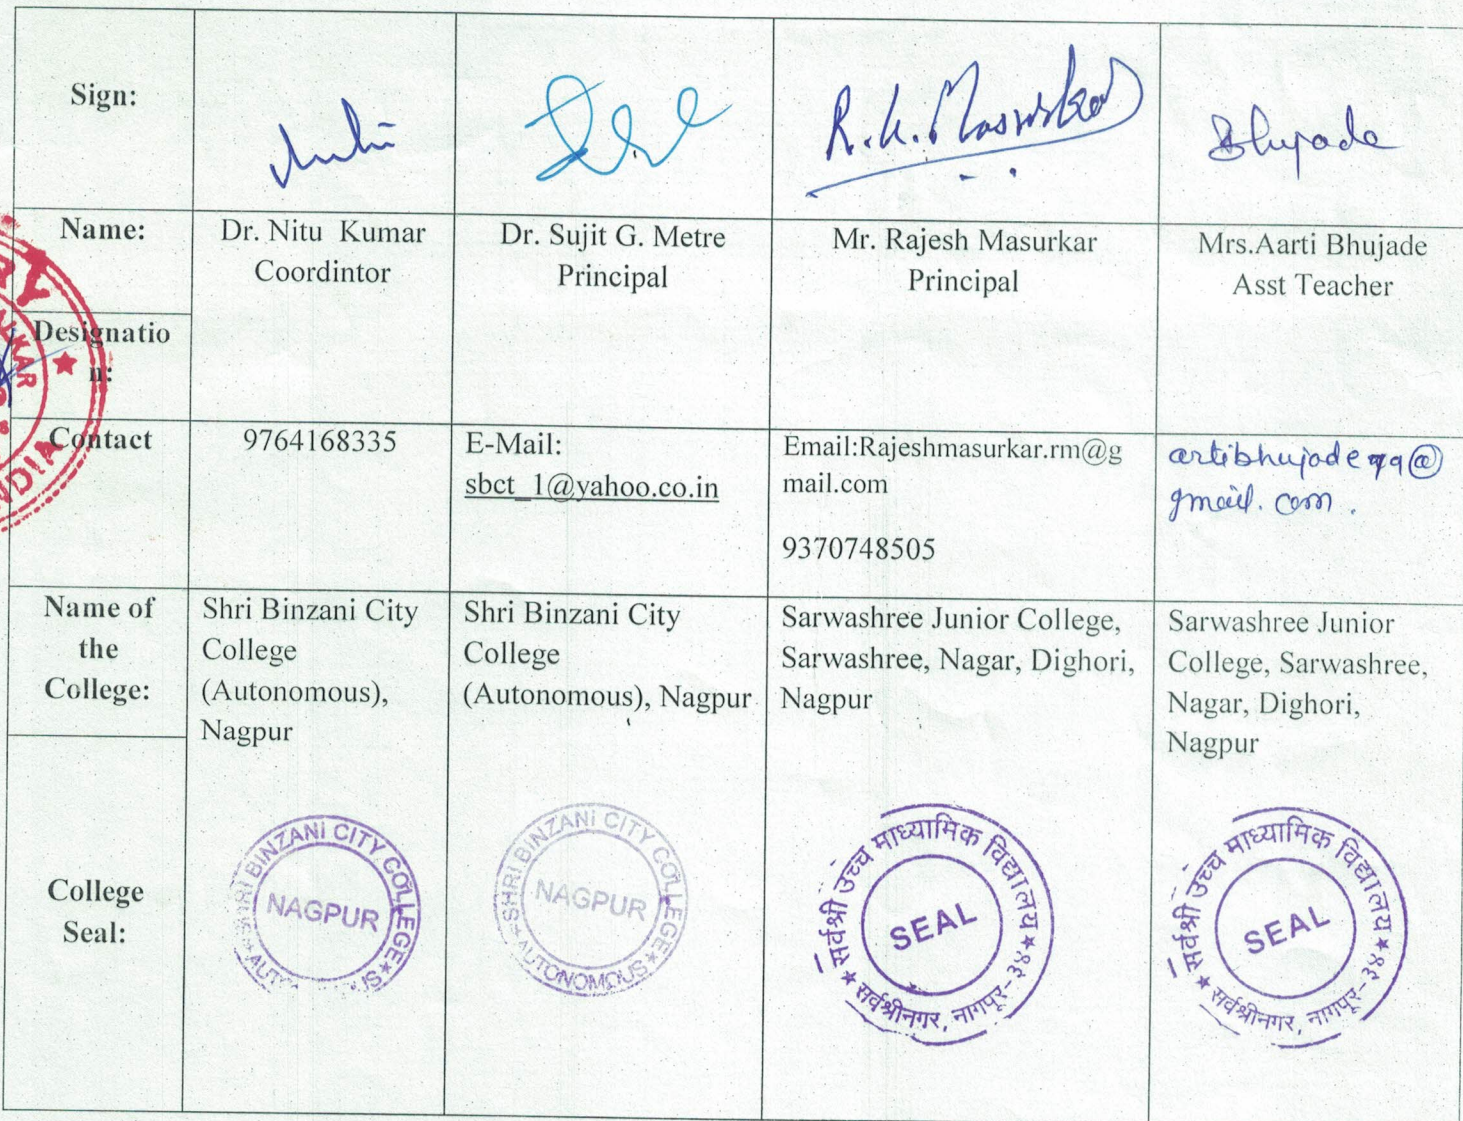 Sign:
R.K. Masurkar
Bhujade
Name:
Dr. Nitu Kumar
Coordintor
Dr. Sujit G. Metre
Principal
Mr. Rajesh Masurkar
Principal
Mrs.Aarti Bhujade
Asst Teacher
Designatio
n:
Contact
9764168335
E-Mail:
sbct_1@yahoo.co.in
Email:Rajeshmasurkar.rm@g
mail.com
9370748505
artibhujade79@
gmail.com.
Name of
the
College:
Shri Binzani City
College
(Autonomous),
Nagpur
Shri Binzani City
College
(Autonomous), Nagpur
Sarwashree Junior College,
Sarwashree, Nagar, Dighori,
Nagpur
Sarwashree Junior
College, Sarwashree,
Nagar, Dighori,
Nagpur
College
Seal:
SHRI BINZANI CITY COLLEGE
NAGPUR
SHRI BINZANI CITY COLLEGE
NAGPUR
AUTONOMOUS
सर्वश्री उच्च माध्यामिक विद्यालय
SEAL
सर्वश्रीनगर, नागपूर-३४
सर्वश्री उच्च माध्यामिक विद्यालय
SEAL
सर्वश्रीनगर, नागपूर-३४
KAR
INDIA